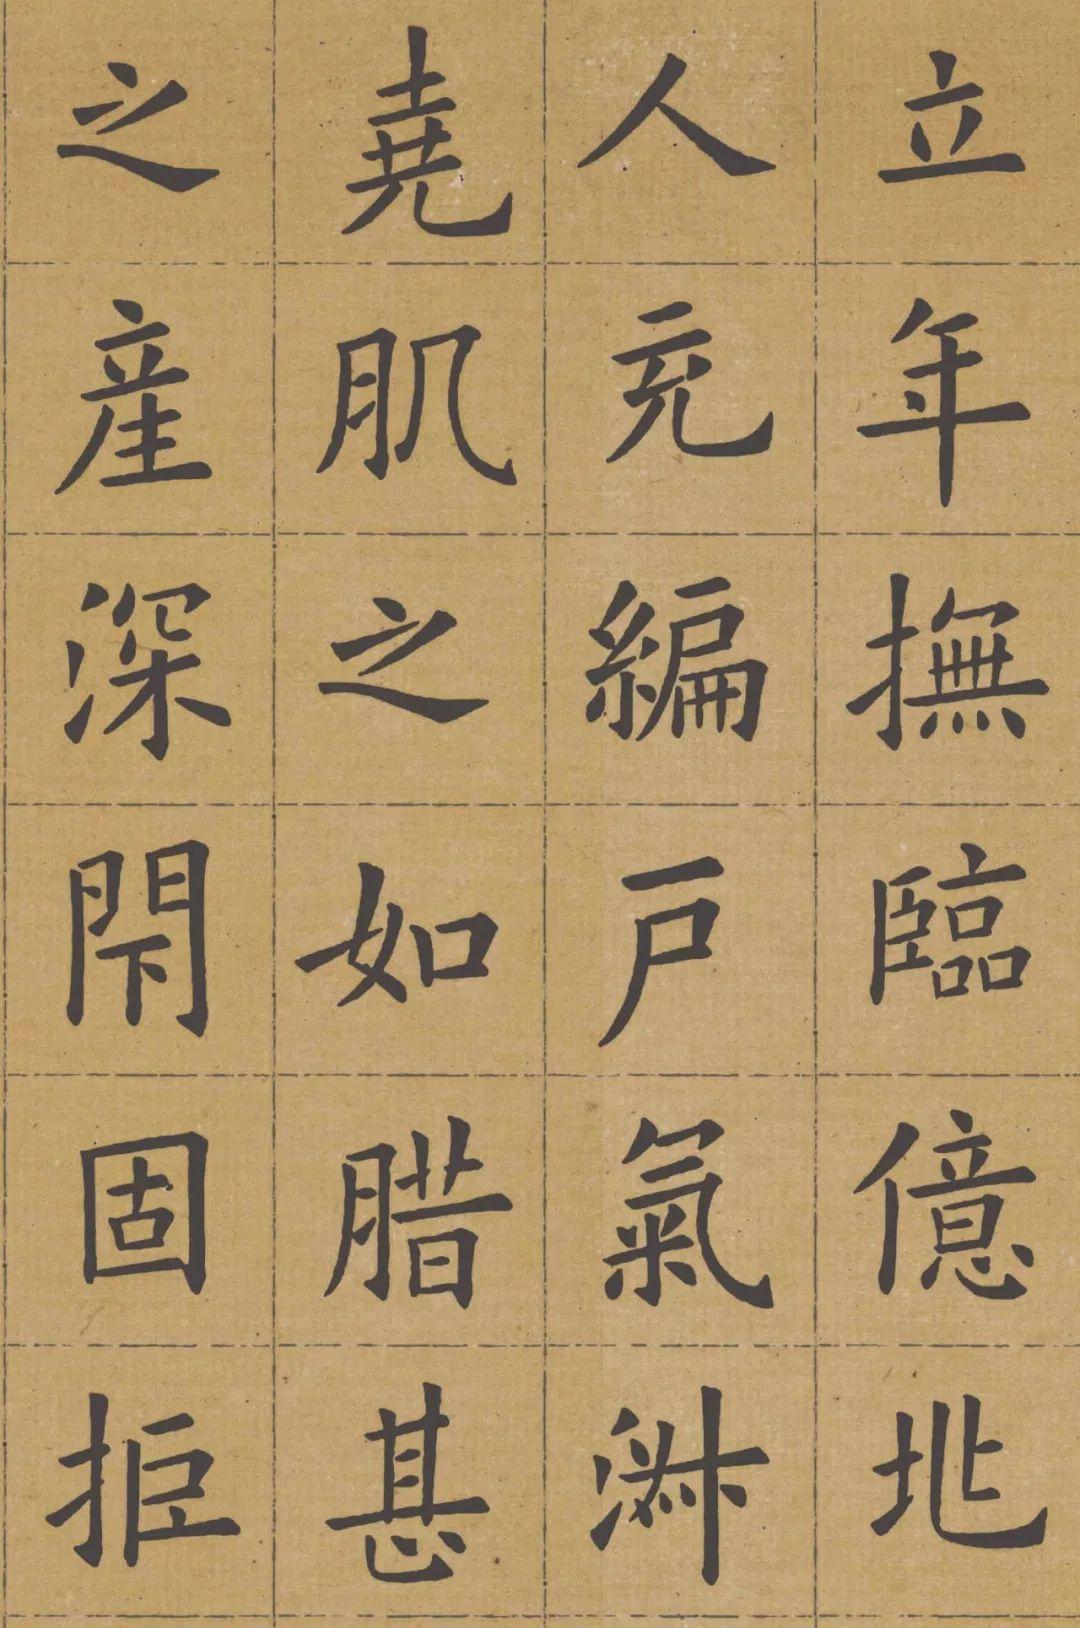 立年撫臨億兆
人充編戸氣淑
堯肌之如腊甚
之產深閇固拒